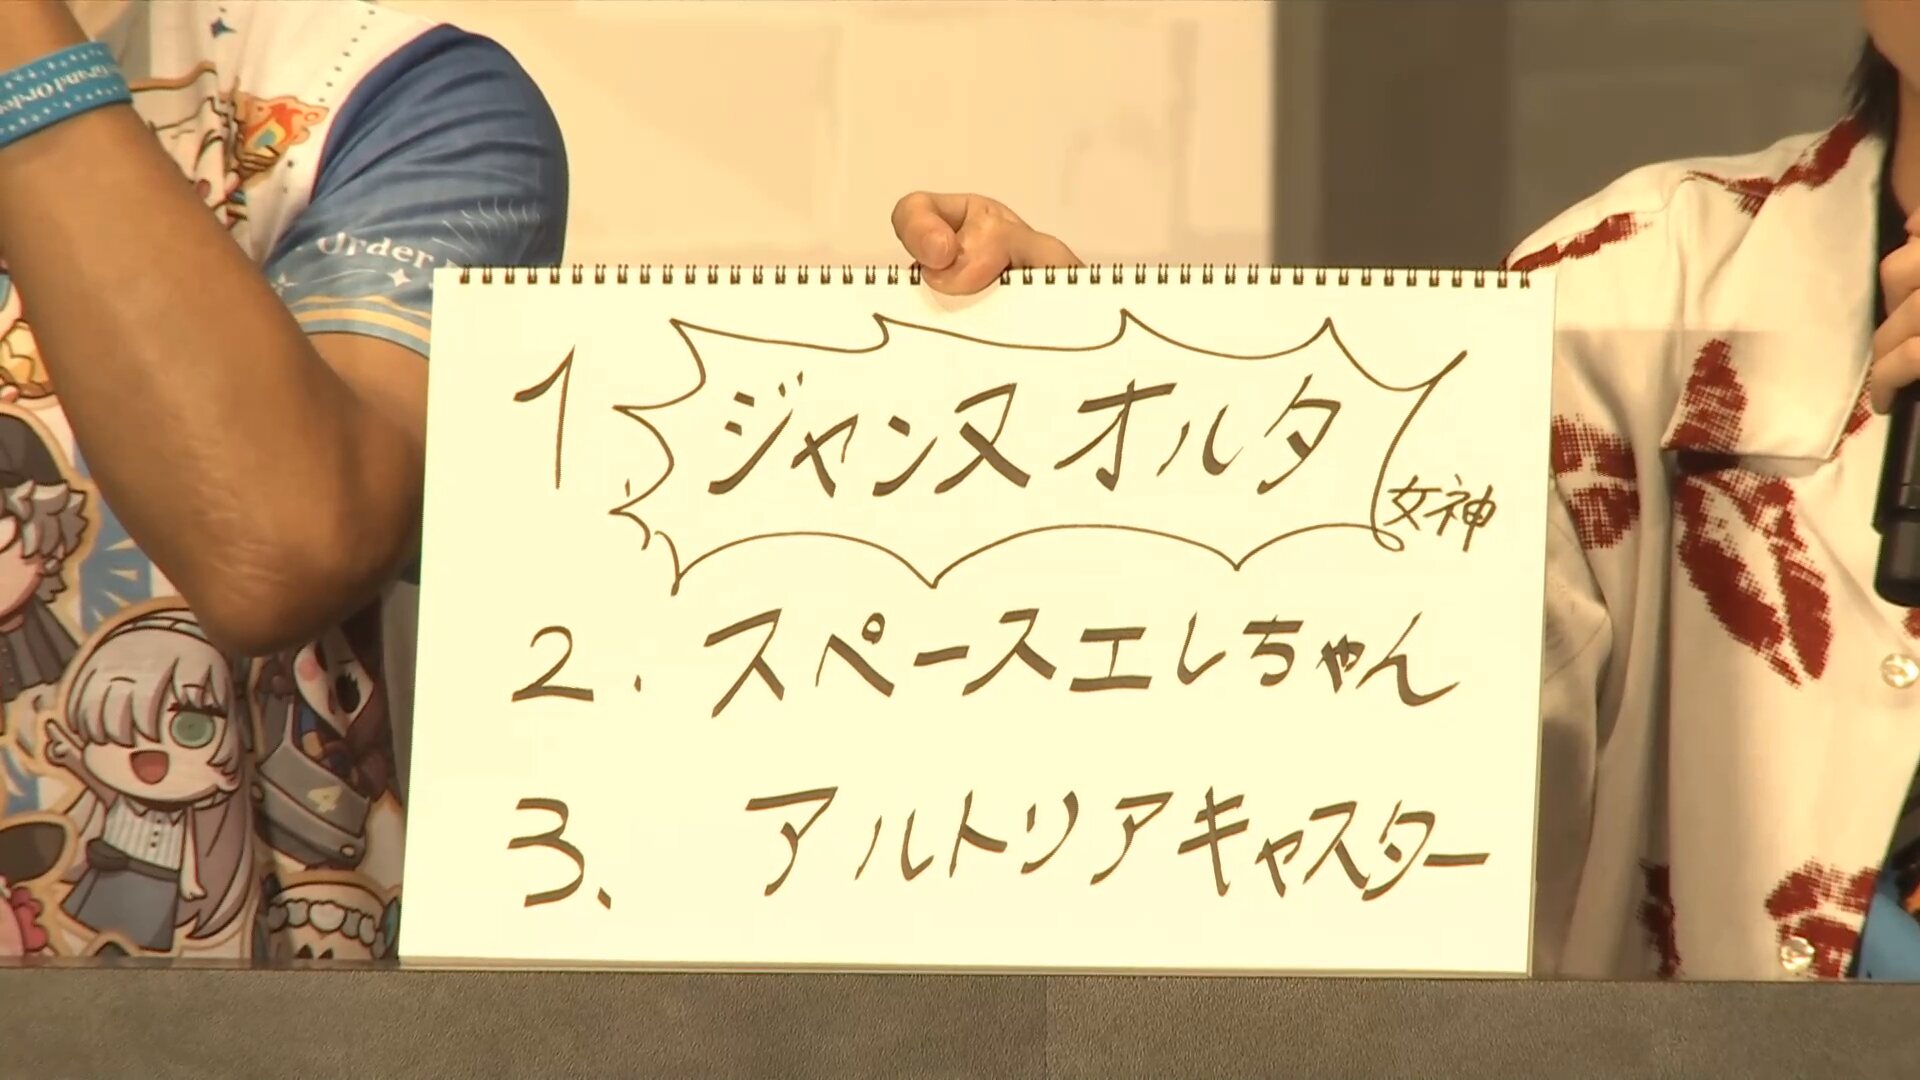 Grand Order
Order
1. ジャンヌオルタ
女神
2. スペースエレちゃん
3. アルトリアキャスター
4